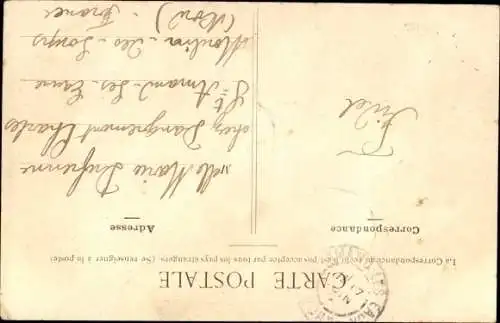 CARTE POSTALE
La Correspondance au recto n'est pas acceptée par tous les pays étrangers. (Se renseigner à la poste)
Correspondance
Adresse
Fidel
Melle Marie Dufrenne
chez Dangremont Charles
St Amand-Les-Eaux
Moulin-des-Loups
(Nord) France